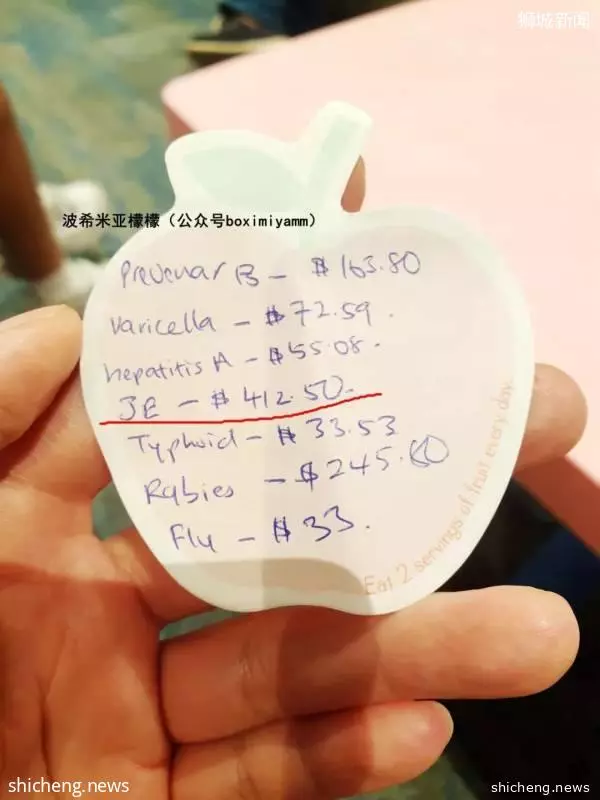 狮城新闻
波希米亚檬檬（公众号boximiyamm）
Prevenar 13 - $163.80
Varicella - $72.59.
hepatitis A - $55.08.
JE - $412.50.
Typhoid - $33.53
Rabies - $245.60
Flu - $33.
Eat 2 servings of fruit every day.
shicheng.news
shicheng.news